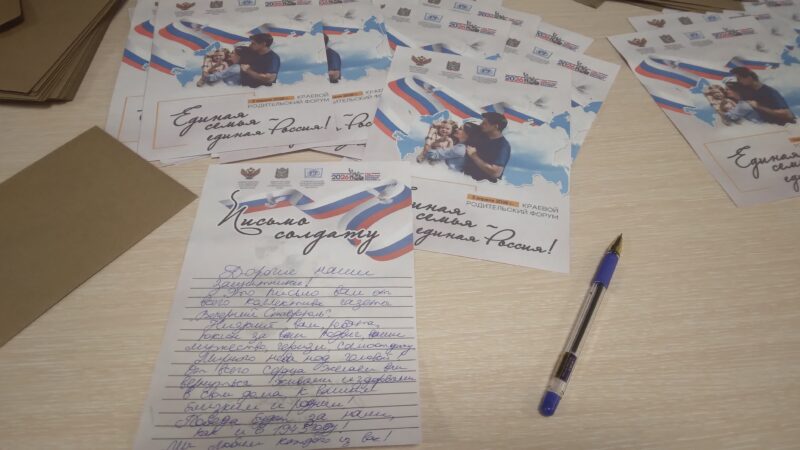 КРАЕВОЙ
РОДИТЕЛЬСКИЙ ФОРУМ
Единая
семья –
единая Россия!
2026
КРАЕВОЙ
РОДИТЕЛЬСКИЙ ФОРУМ
Единая
семья –
единая Россия!
Единая
семья
единая
2026
Письмо
солдату
Дорогие наши
Защитники!
Это письмо вам от
всего коллектива газеты
"Вечерний Ставрополь".
Низкий вам, ребята,
поклон за ваш подвиг, ваше
мужество, героизм,
Мирного неба над головой!
От всего сердца желаем вам
вернуться живыми и здоровыми
в свои дома, к вашим
близким и родным!
Победа будет за нами,
как и в 1945 году!
Мы любим каждого из вас!